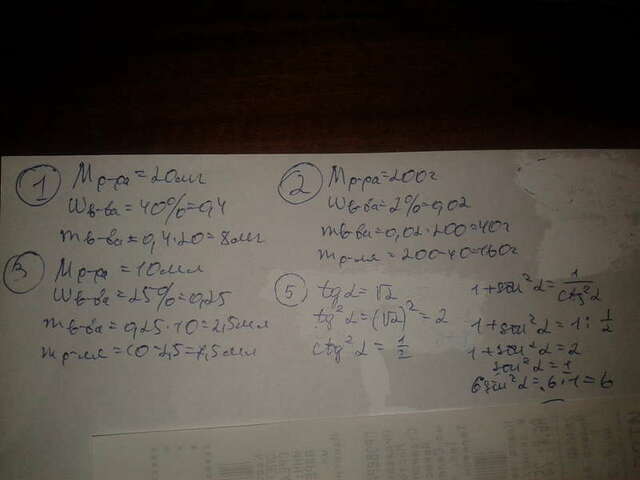 1
Mр-ра = 20мг
Wв-ва = 40% = 0,4
mв-ва = 0,4·20 = 8мг
2
Mр-ра = 200г
Wв-ва = 2% = 0,02
mв-ва = 0,02·200 = 40г
mр-ля = 200-40 = 160г
3
Mр-ра = 10мл
Wв-ва = 25% = 0,25
mв-ва = 0,25·10 = 2,5мл
mр-ля = 10-2,5 = 7,5мл
5
tg α = √2
tg²α = (√2)² = 2
ctg²α = 1/2
1 + sin²α = 1/ctg²α
1 + sin²α = 1 : 1/2
1 + sin²α = 2
sin²α = 1
6 sin²α = 6·1 = 6